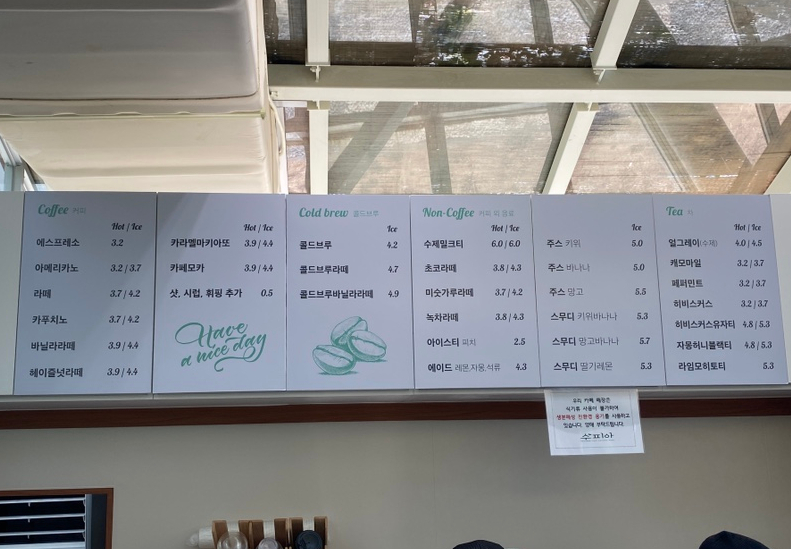 Coffee 커피
Hot / Ice
에스프레소 3.2
아메리카노 3.2 / 3.7
라떼 3.7 / 4.2
카푸치노 3.7 / 4.2
바닐라라떼 3.9 / 4.4
헤이즐넛라떼 3.9 / 4.4
Hot / Ice
카라멜마키아또 3.9 / 4.4
카페모카 3.9 / 4.4
샷, 시럽, 휘핑 추가 0.5
Have
a nice day
Cold brew 콜드브루
Ice
콜드브루 4.2
콜드브루라떼 4.7
콜드브루바닐라라떼 4.9
Non-Coffee 커피 외 음료
Hot / Ice
수제밀크티 6.0 / 6.0
초코라떼 3.8 / 4.3
미숫가루라떼 3.7 / 4.2
녹차라떼 3.8 / 4.3
아이스티 피치 2.5
에이드 레몬,자몽,석류 4.3
Ice
주스 키위 5.0
주스 바나나 5.0
주스 망고 5.5
스무디 키위바나나 5.3
스무디 망고바나나 5.7
스무디 딸기레몬 5.3
Tea 차
Hot / Ice
얼그레이(수제) 4.0 / 4.5
캐모마일 3.2 / 3.7
페퍼민트 3.2 / 3.7
히비스커스 3.2 / 3.7
히비스커스유자티 4.8 / 5.3
자몽허니블랙티 4.8 / 5.3
라임모히토티 5.3
우리 카페 매장은
식기류 사용이 불가하여
생분해성 친환경 용기를 사용하고
있습니다. 양해 부탁드립니다.
수피아